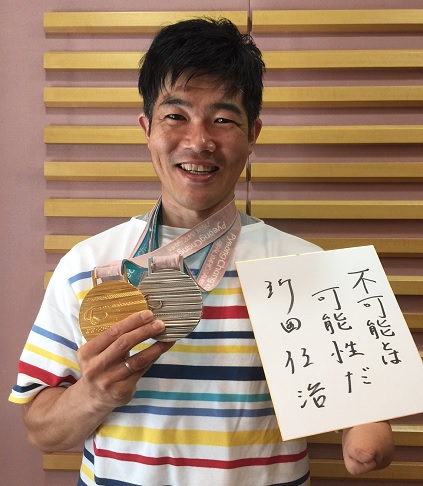 不可能とは
可能性だ
新田佳浩
PyeongChang